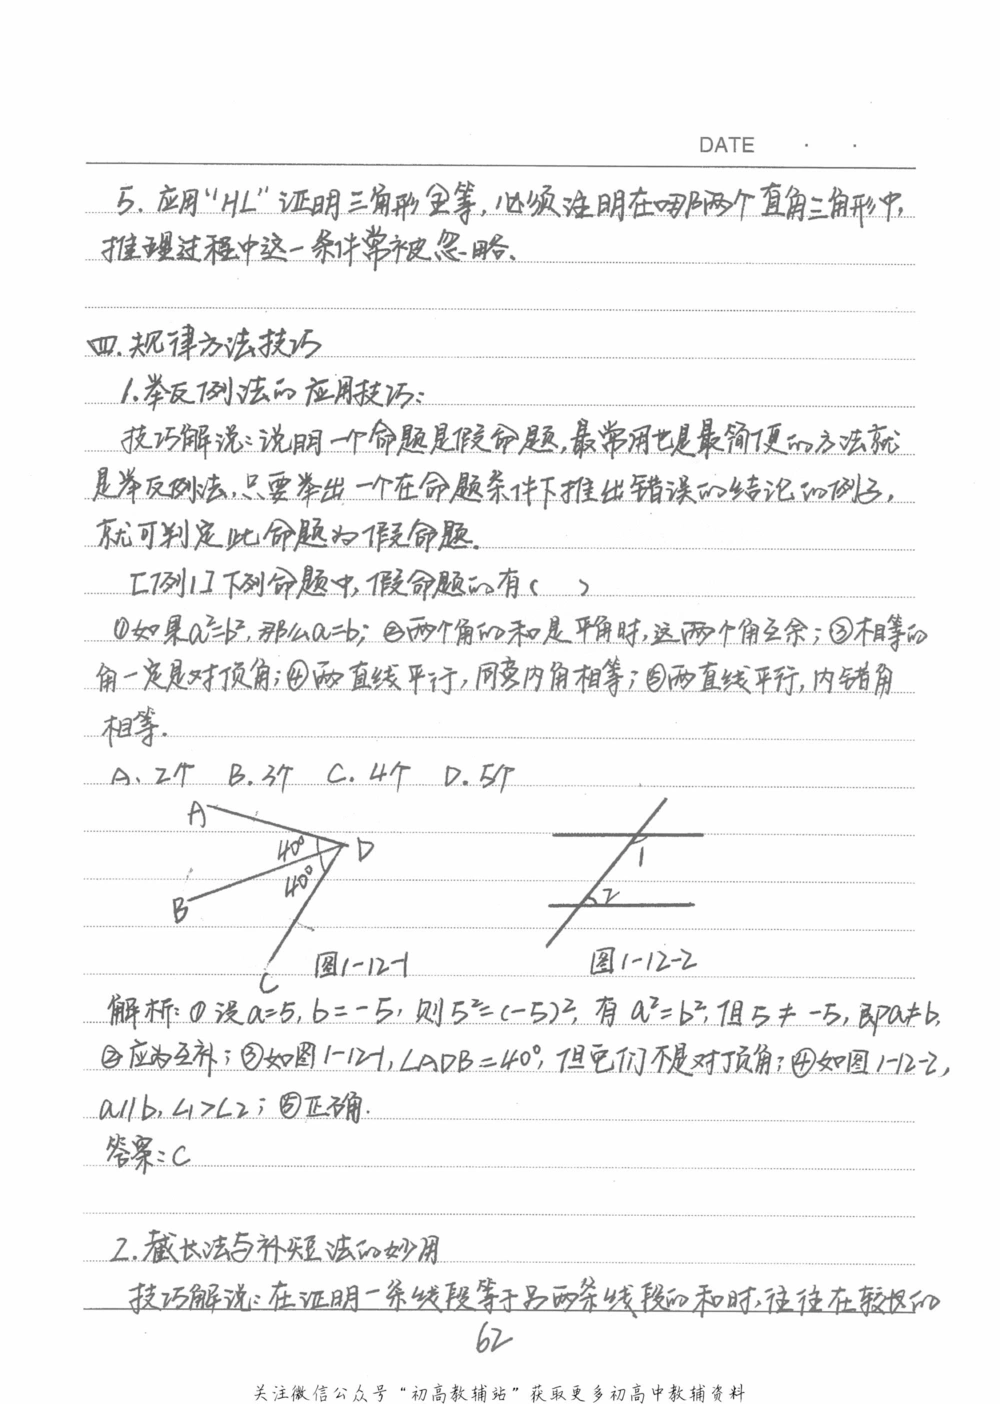 DATE · ·
5. 应用“HL”证明三角形全等,必须注明在哪两个直角三角形中,
推理过程中这一条件常被忽略.
四.规律方法技巧
1.举反例法的应用技巧:
技巧解说:说明一个命题是假命题,最常用也是最简便的方法就
是举反例法,只要举出一个在命题条件下推出错误的结论的例子,
就可判定此命题为假命题.
[例1]下列命题中,假命题的有( )
①如果a²=b²,那么a=b;②两个角的和是平角时,这两个角互余;③相等的
角一定是对顶角;④两直线平行,同旁内角相等;⑤两直线平行,内错角
相等.
A.2个 B.3个 C.4个 D.5个
A
40°
D
40°
B
C
图1-12-1
1
2
图1-12-2
解析:①设a=5,b=-5,则5²=(-5)²,有a²=b²,但5≠-5,即a≠b,
②应为互补;③如图1-12-1,∠ADB=40°,但它们不是对顶角;④如图1-12-2,
a//b,∠1>∠2;⑤正确.
答案:C
2.截长法与补短法的妙用
技巧解说:在证明一条线段等于另两条线段的和时,往往在较长的
62
关注微信公众号“初高教辅站”获取更多初高中教辅资料